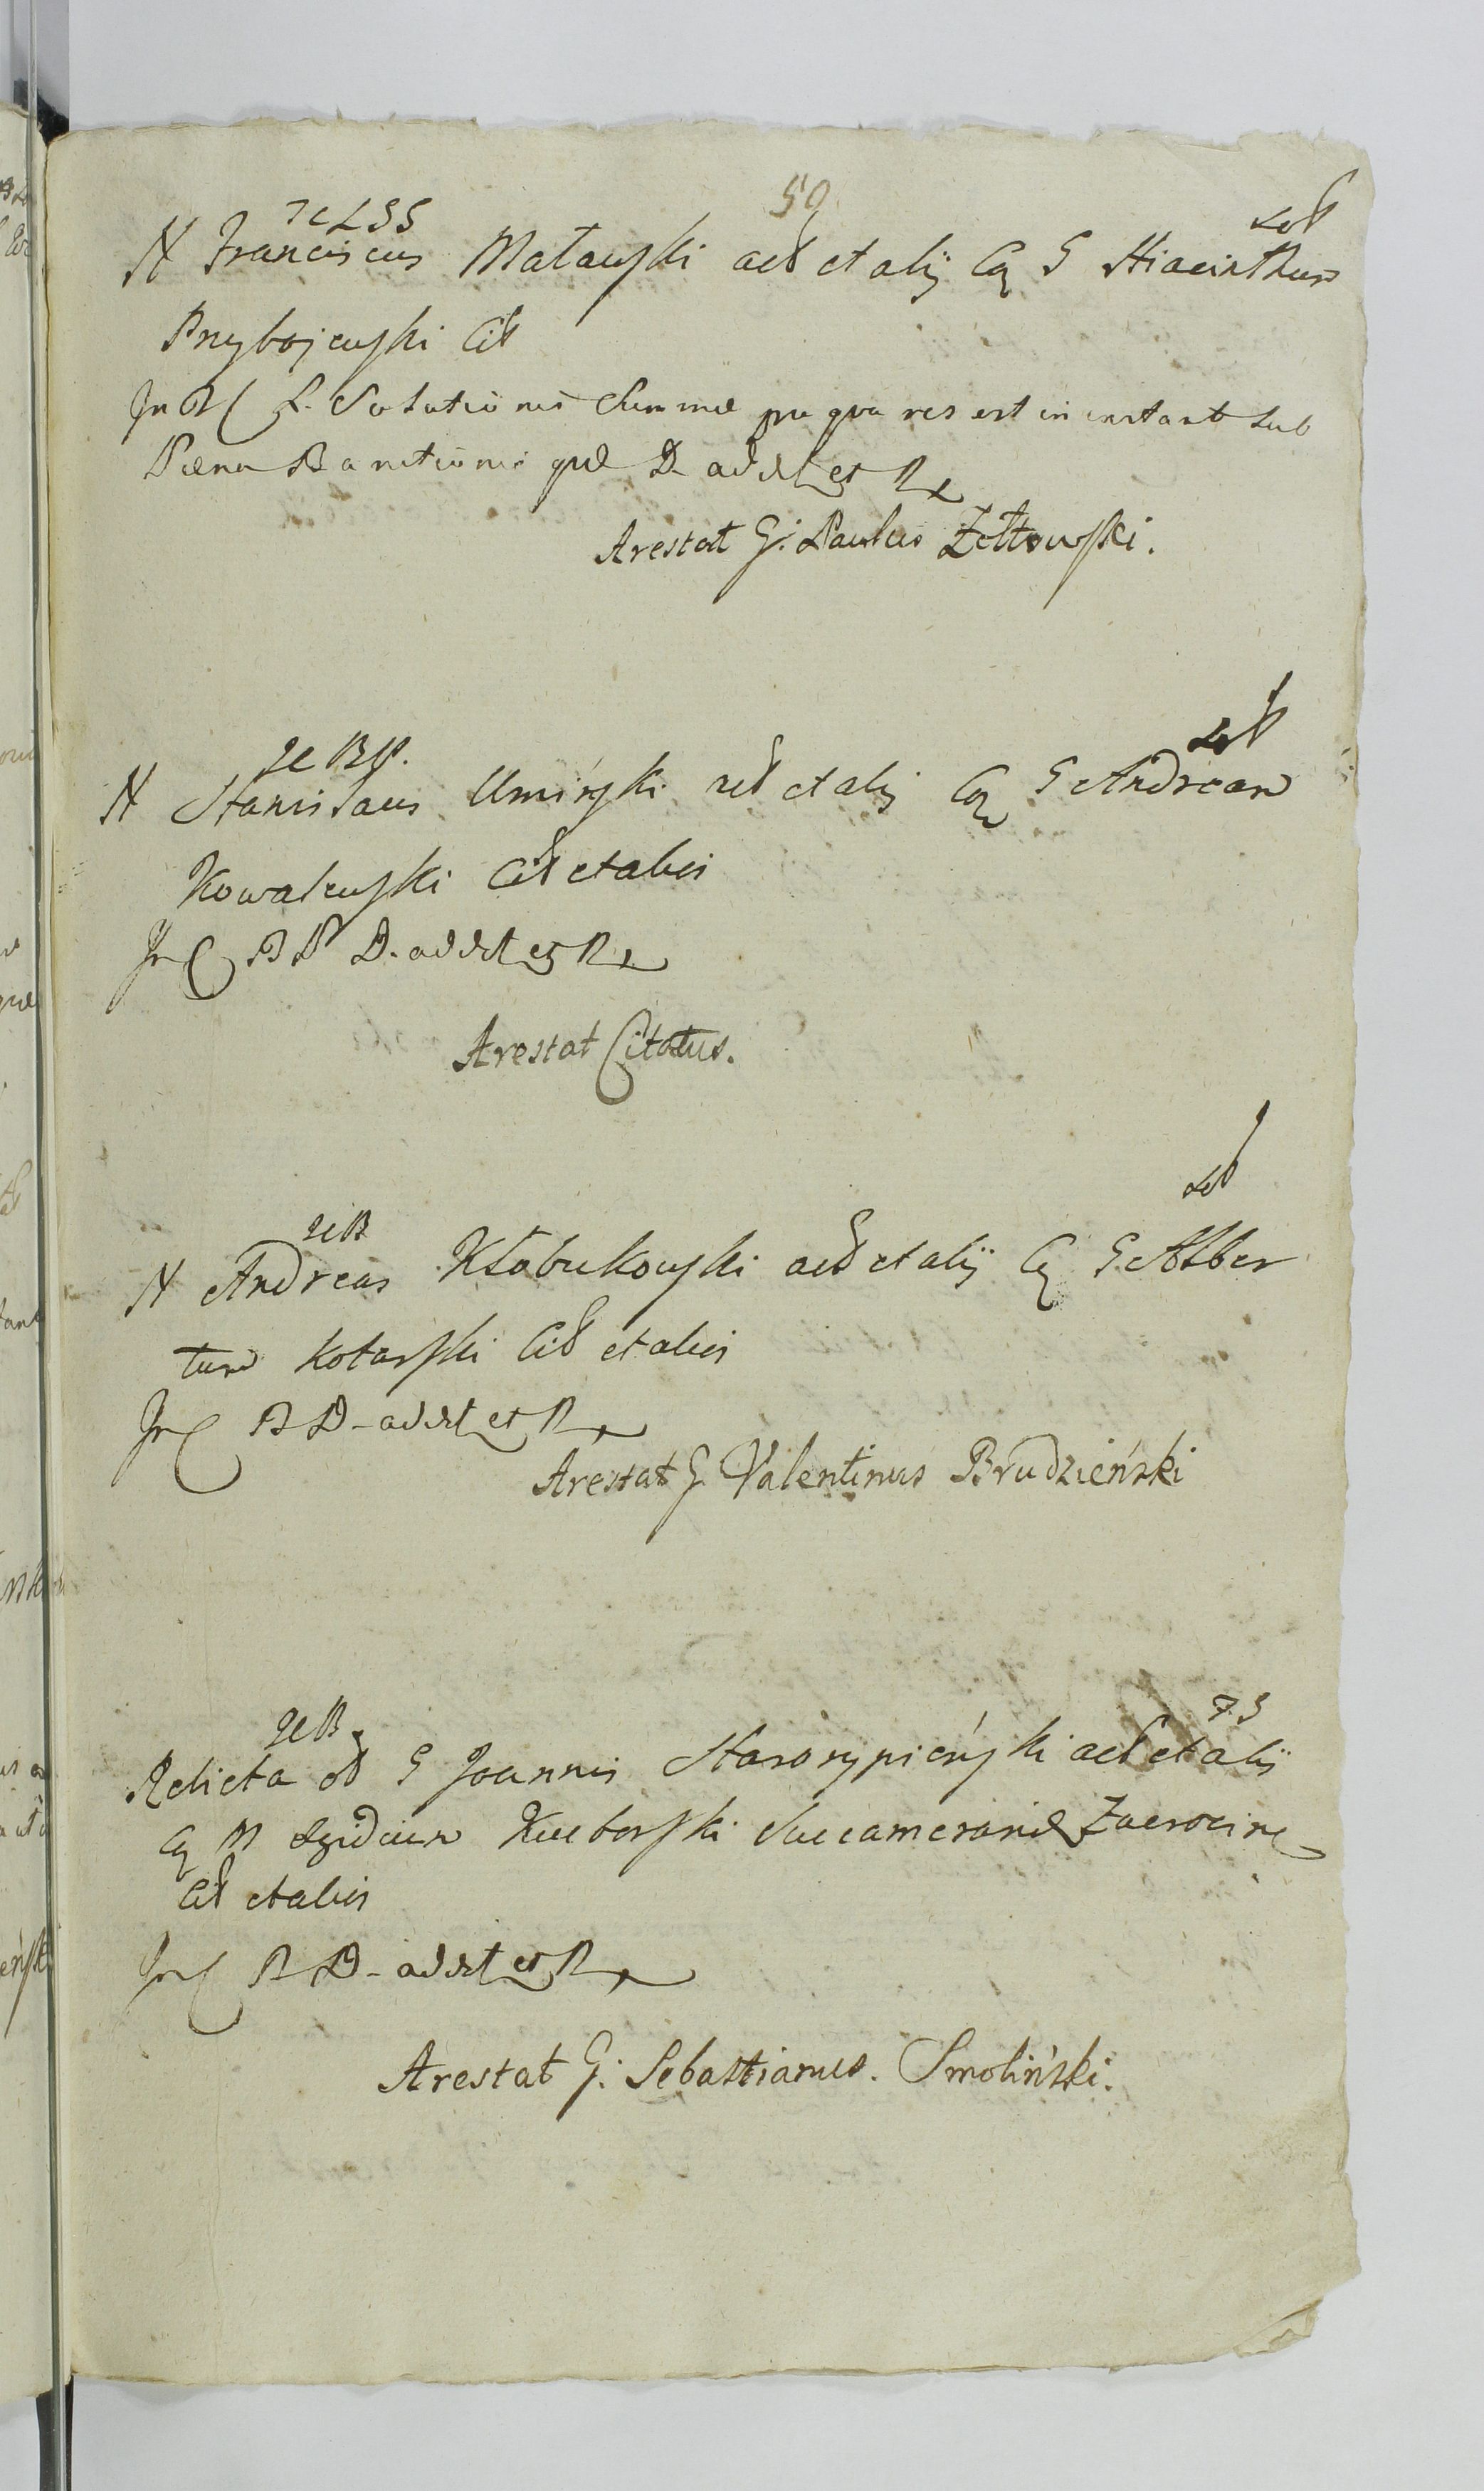 59
N Franciscus Małauski act et alij Cq G Hiacinthum
Przybojeuski Cit
In L. Solutionis Summæ pro qua res est in instant sub
Pæna Banitionis quæ D addit et R
Arestat G: Paulus Żołtowski.
N Stanislaus Uminski act et alij Cq G Andream
Kowaleuski Cit et alios
In BP D. addit et R
Arestat Citatus.
N Andreas Kłobukouski act et alij Cq G Alber
tum Kotarski Cit et alios
In B D - addit et R
Arestat G. Valentinus Brudzieński
Relicta ol G Joannis Starorypieński act et alij
Cq M Egidium Kuborski Succamerariũ Zacrocin
Cit et alios
In B D - addit et R
Arestat G: Sebastianus. Smoliński.